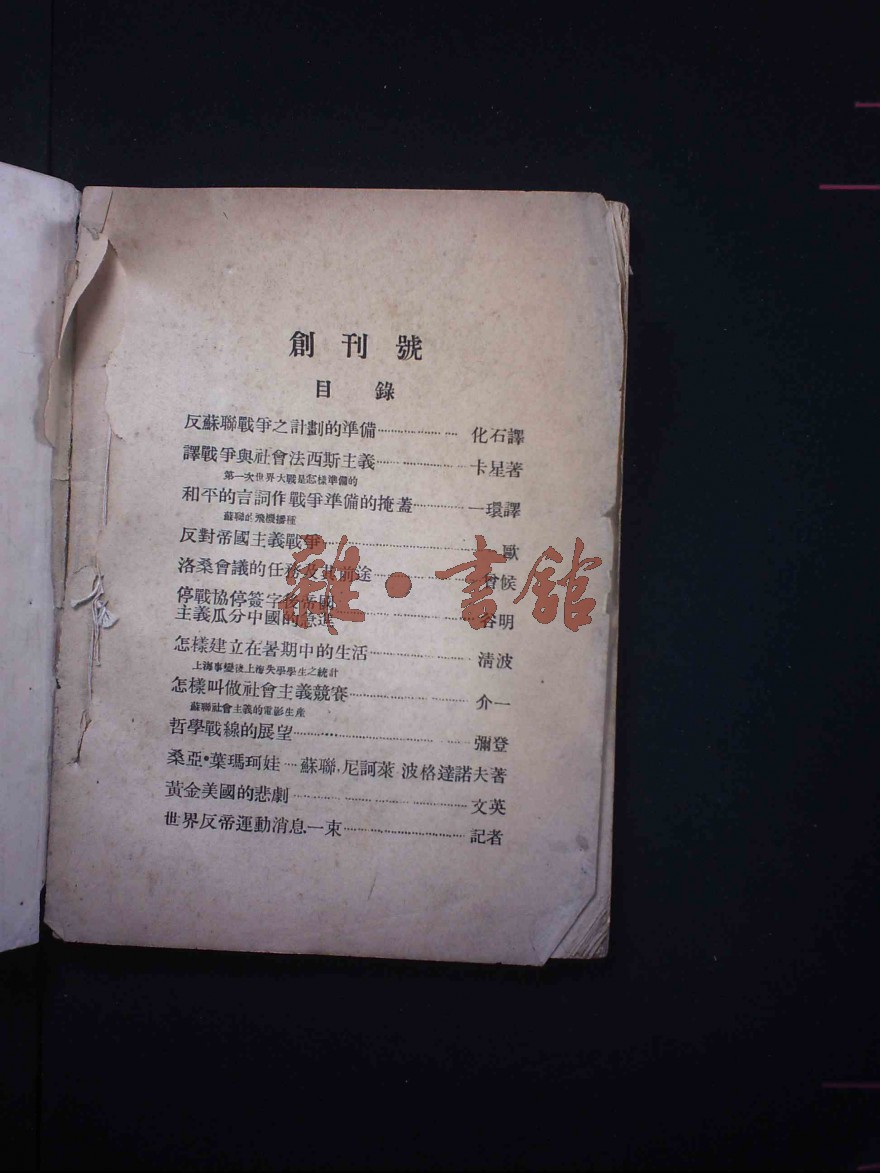 創刊號
目錄
反蘇聯戰爭之計劃的準備 化石譯
譯戰爭與社會法西斯主義 卡星著
第一次世界大戰是怎樣準備的
和平的言詞作戰爭準備的掩蓋 一環譯
蘇聯的飛機播種
反對帝國主義戰爭 歐
洛桑會議的任務及其前途 曾候
停戰協停簽字後帝國
主義瓜分中國的急進 谷明
怎樣建立在暑期中的生活 清波
上海事變後上海失學學生之統計
怎樣叫做社會主義競賽 介一
蘇聯社會主義的電影生產
哲學戰線的展望 彌登
桑亞•葉瑪珂娃 蘇聯,尼訶萊 波格達諾夫著
黃金美國的悲劇 文英
世界反帝運動消息一束 記者
雜•書館